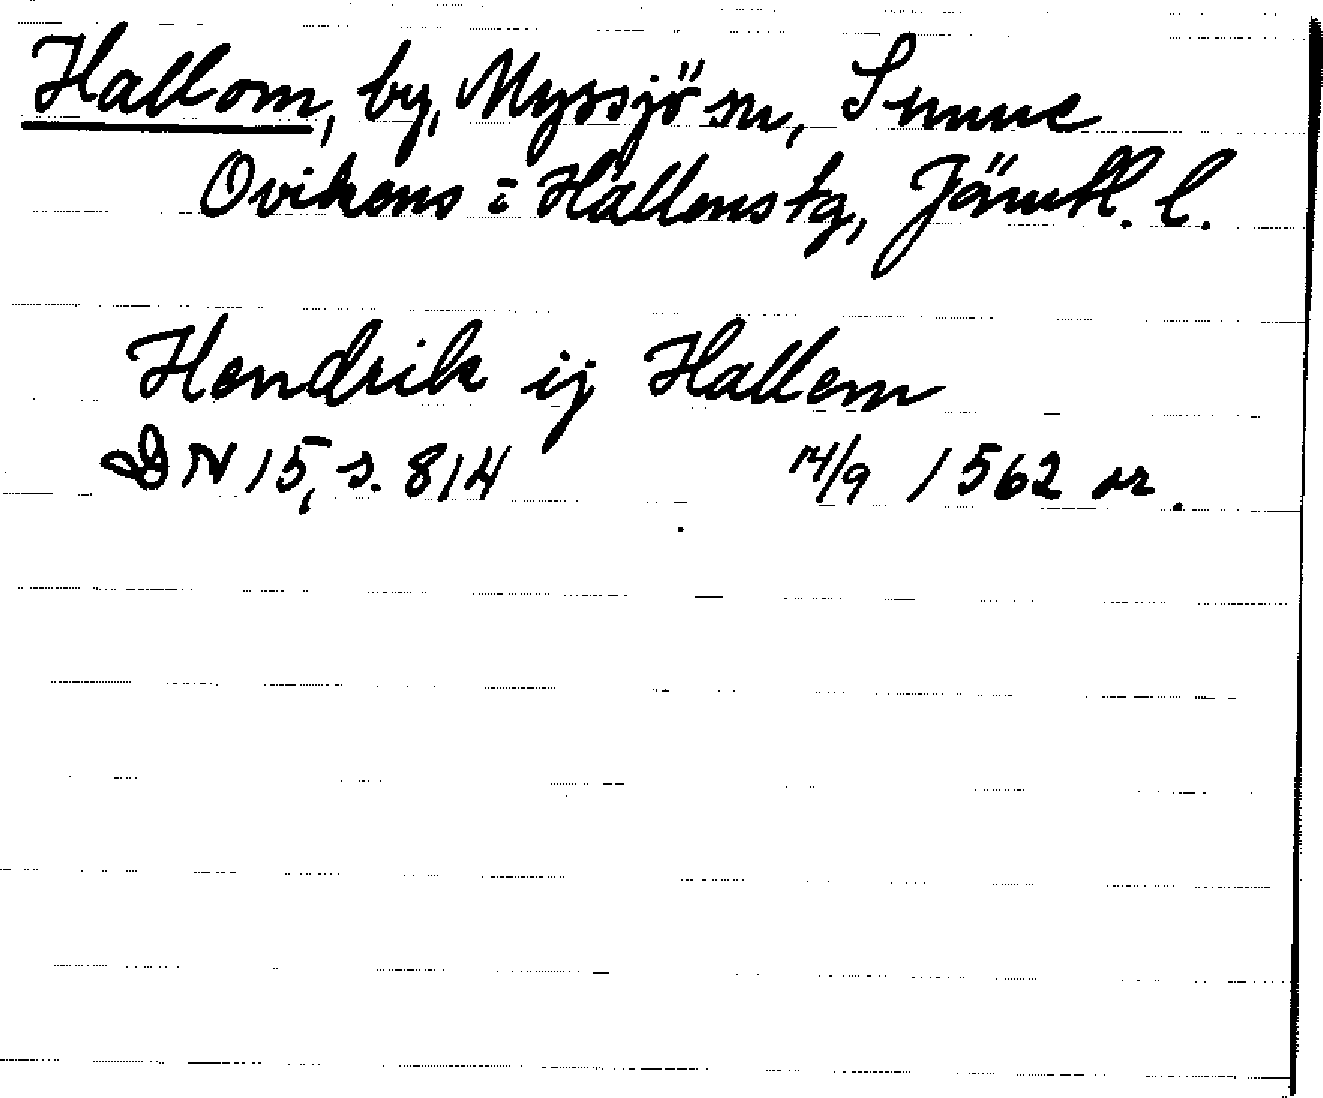 Hallom, by, Myssjö sn, Sunne
Ovikens = Hallens tg, Jämtl. l.
Hendrik ij Hallem
DN 15, s. 814 14/9 1562 or.